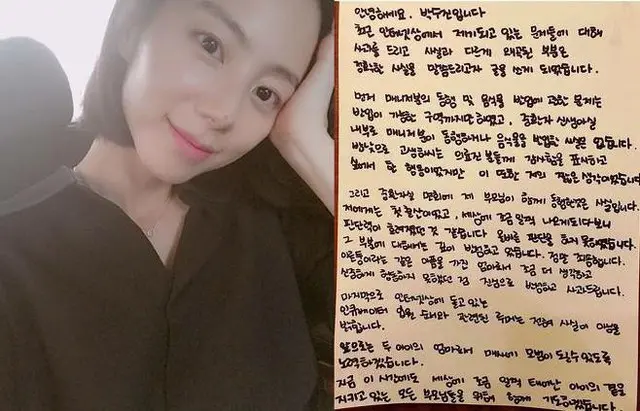 안녕하세요. 박수진입니다
최근 인터넷상에서 제기되고 있는 문제들에 대해
사과를 드리고 사실과 다르게 왜곡된 부분은
정확한 사실을 말씀드리고자 글을 쓰게 되었습니다.
먼저 매니저분의 동행 및 음식물 반입에 관한 문제는
반입이 가능한 구역까지만이었고, 중환자 신생아실
내부로 매니저분이 동행하거나 음식물을 반입한 사실은 없습니다.
밤낮으로 고생하시는 의료진 분들께 감사함을 표시하고
싶어서 한 행동이었지만 이 또한 저의 짧은 생각이었습니다
그리고 중환자실 면회에 제 부모님이 함께 동행한것은 사실입니다.
저에게는 첫 출산이었고, 세상에 조금 일찍 나오게되다보니
판단력이 흐려졌던 것 같습니다 올바른 판단을 하지 못했습니다
그 부분에 대해서는 깊이 반성하고 있습니다. 정말 죄송합니다.
이른둥이라는 같은 아픔을 가진 엄마로서 조금 더 생각하고
신중하게 행동하지 못했던 점 진심으로 반성하고 사과드립니다.
마지막으로 인터넷상에 돌고 있는
인큐베이터 입원 순서와 관련된 루머는 전혀 사실이 아님을
밝힙니다.
앞으로는 두 아이의 엄마로서 매사에 모범이 되도록
노력하겠습니다.
지금 이 시각에도 세상에 조금 일찍 태어난 아이의 곁을
지키고 있는 모든 부모님들을 위해 함께 기도하겠습니다.